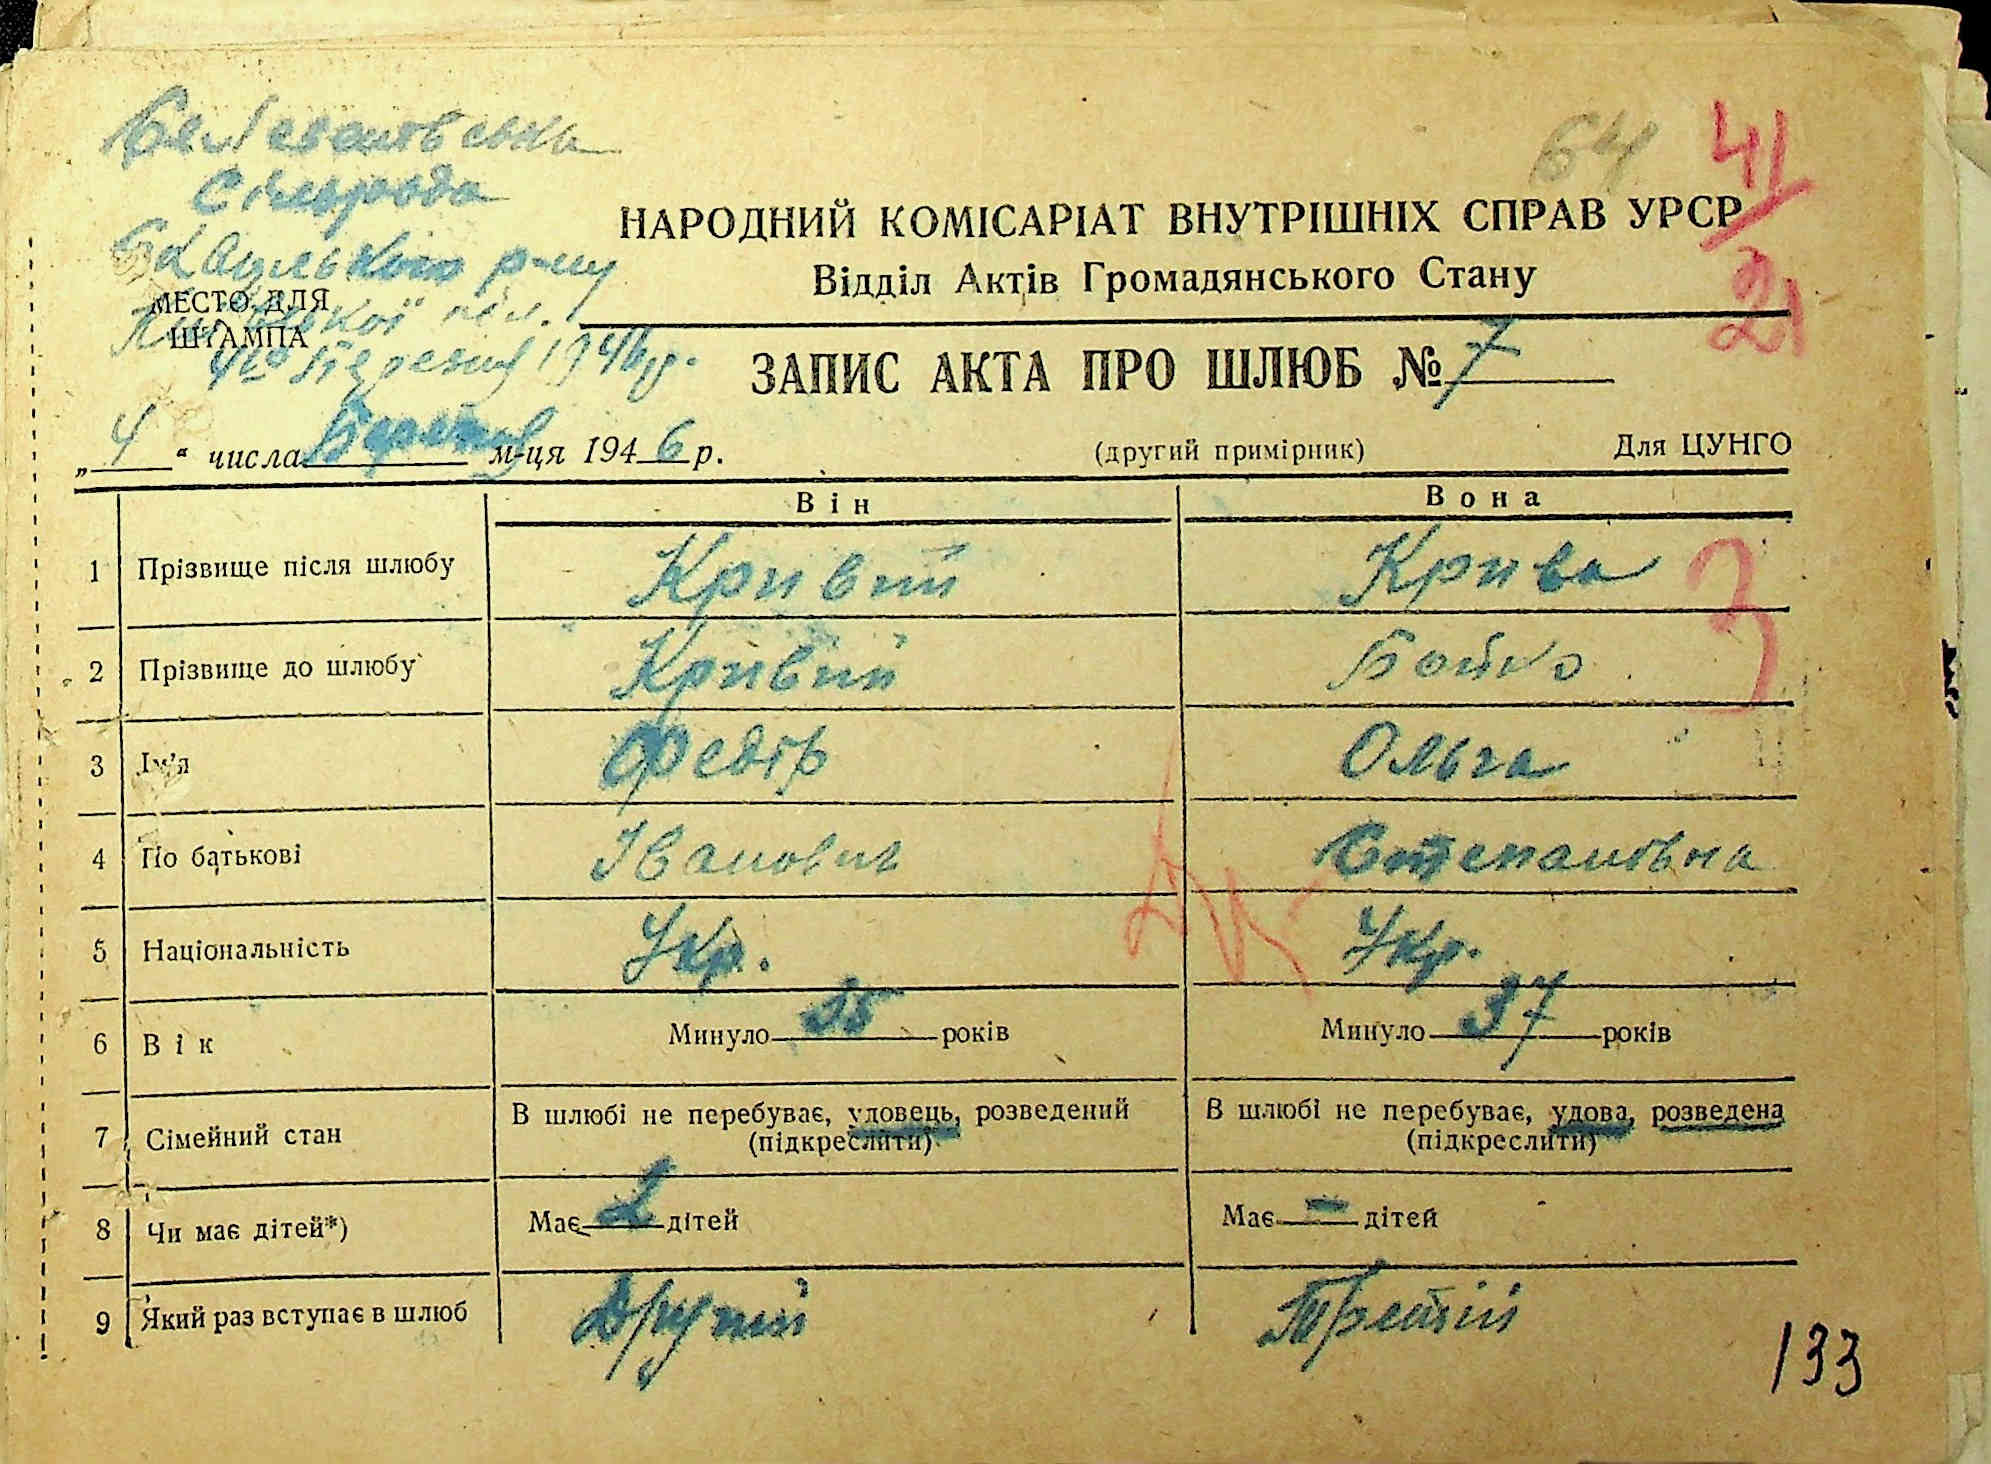 сільрада
р-ну
МЕСТО ДЛЯ
ШТАМПА
4го Березня 1946 р.
64
41/21
НАРОДНИЙ КОМІСАРІАТ ВНУТРІШНІХ СПРАВ УРСР
Відділ Актів Громадянського Стану
ЗАПИС АКТА ПРО ШЛЮБ № 7
„4“ числа Березня м-ця 1946 р. (другий примірник) Для ЦУНГО
Він Вона
1 Прізвище після шлюбу Кривий Крива
3
2 Прізвище до шлюбу Кривий Бойко
3 Ім'я Федір Ольга
4 По батькові Іванович Степановна
5 Національність Укр. Укр.
6 Вік Минуло 35 років Минуло 37 років
7 Сімейний стан В шлюбі не перебуває, удовець, розведений В шлюбі не перебуває, удова, розведена
(підкреслити) (підкреслити)
8 Чи має дітей*) Має 2 дітей Має - дітей
9 Який раз вступає в шлюб Другий Третій
133